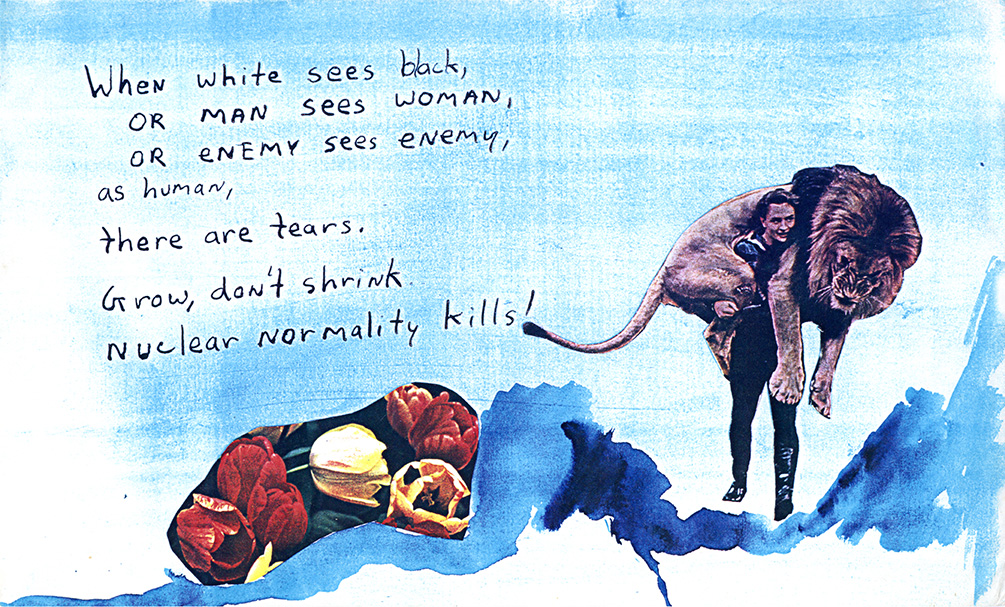 When white sees black,
OR MAN sees WOMAN,
OR ENEMY sees eNemy,
as human,
there are tears.
Grow, don't shrink.
Nuclear Normality kills!